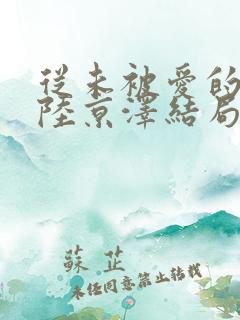 從未被愛的
陸京澤結局
蘇芷
未经同意禁止转载